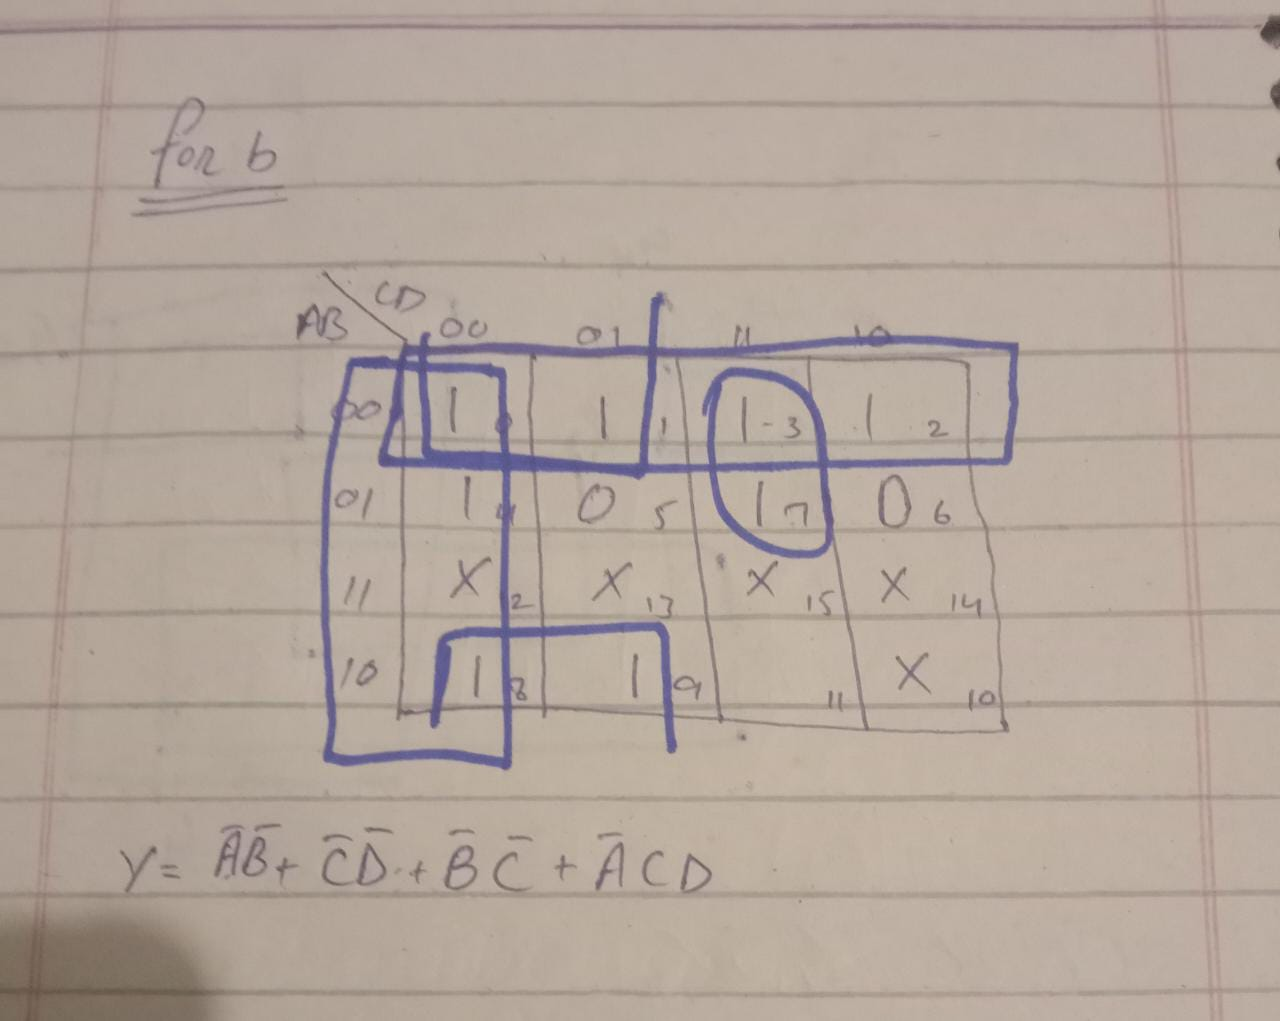 for b
CD
AB
00 01 11 10
00 1 0 1 1 1 3 1 2
01 1 4 0 5 1 7 0 6
11 X 12 X 13 X 15 X 14
10 1 8 1 9 11 X 10
Y = A̅B̅ + C̅D̅ + B̅ C̅ + A̅ C D